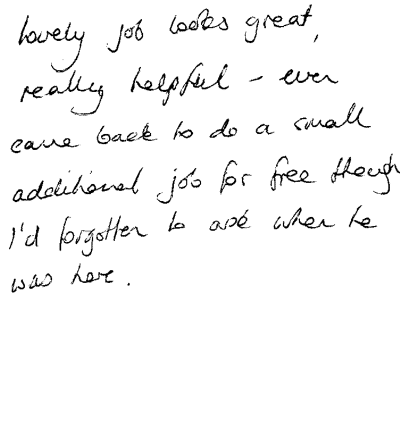 Lovely job looks great,
really helpful - even
came back to do a small
additional job for free though
I'd forgotten to ask when he
was here.